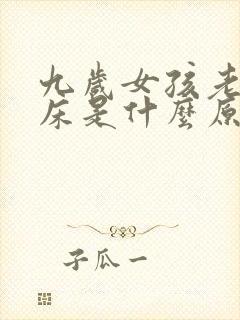 九歲女孩老
床是什麼原
子瓜一